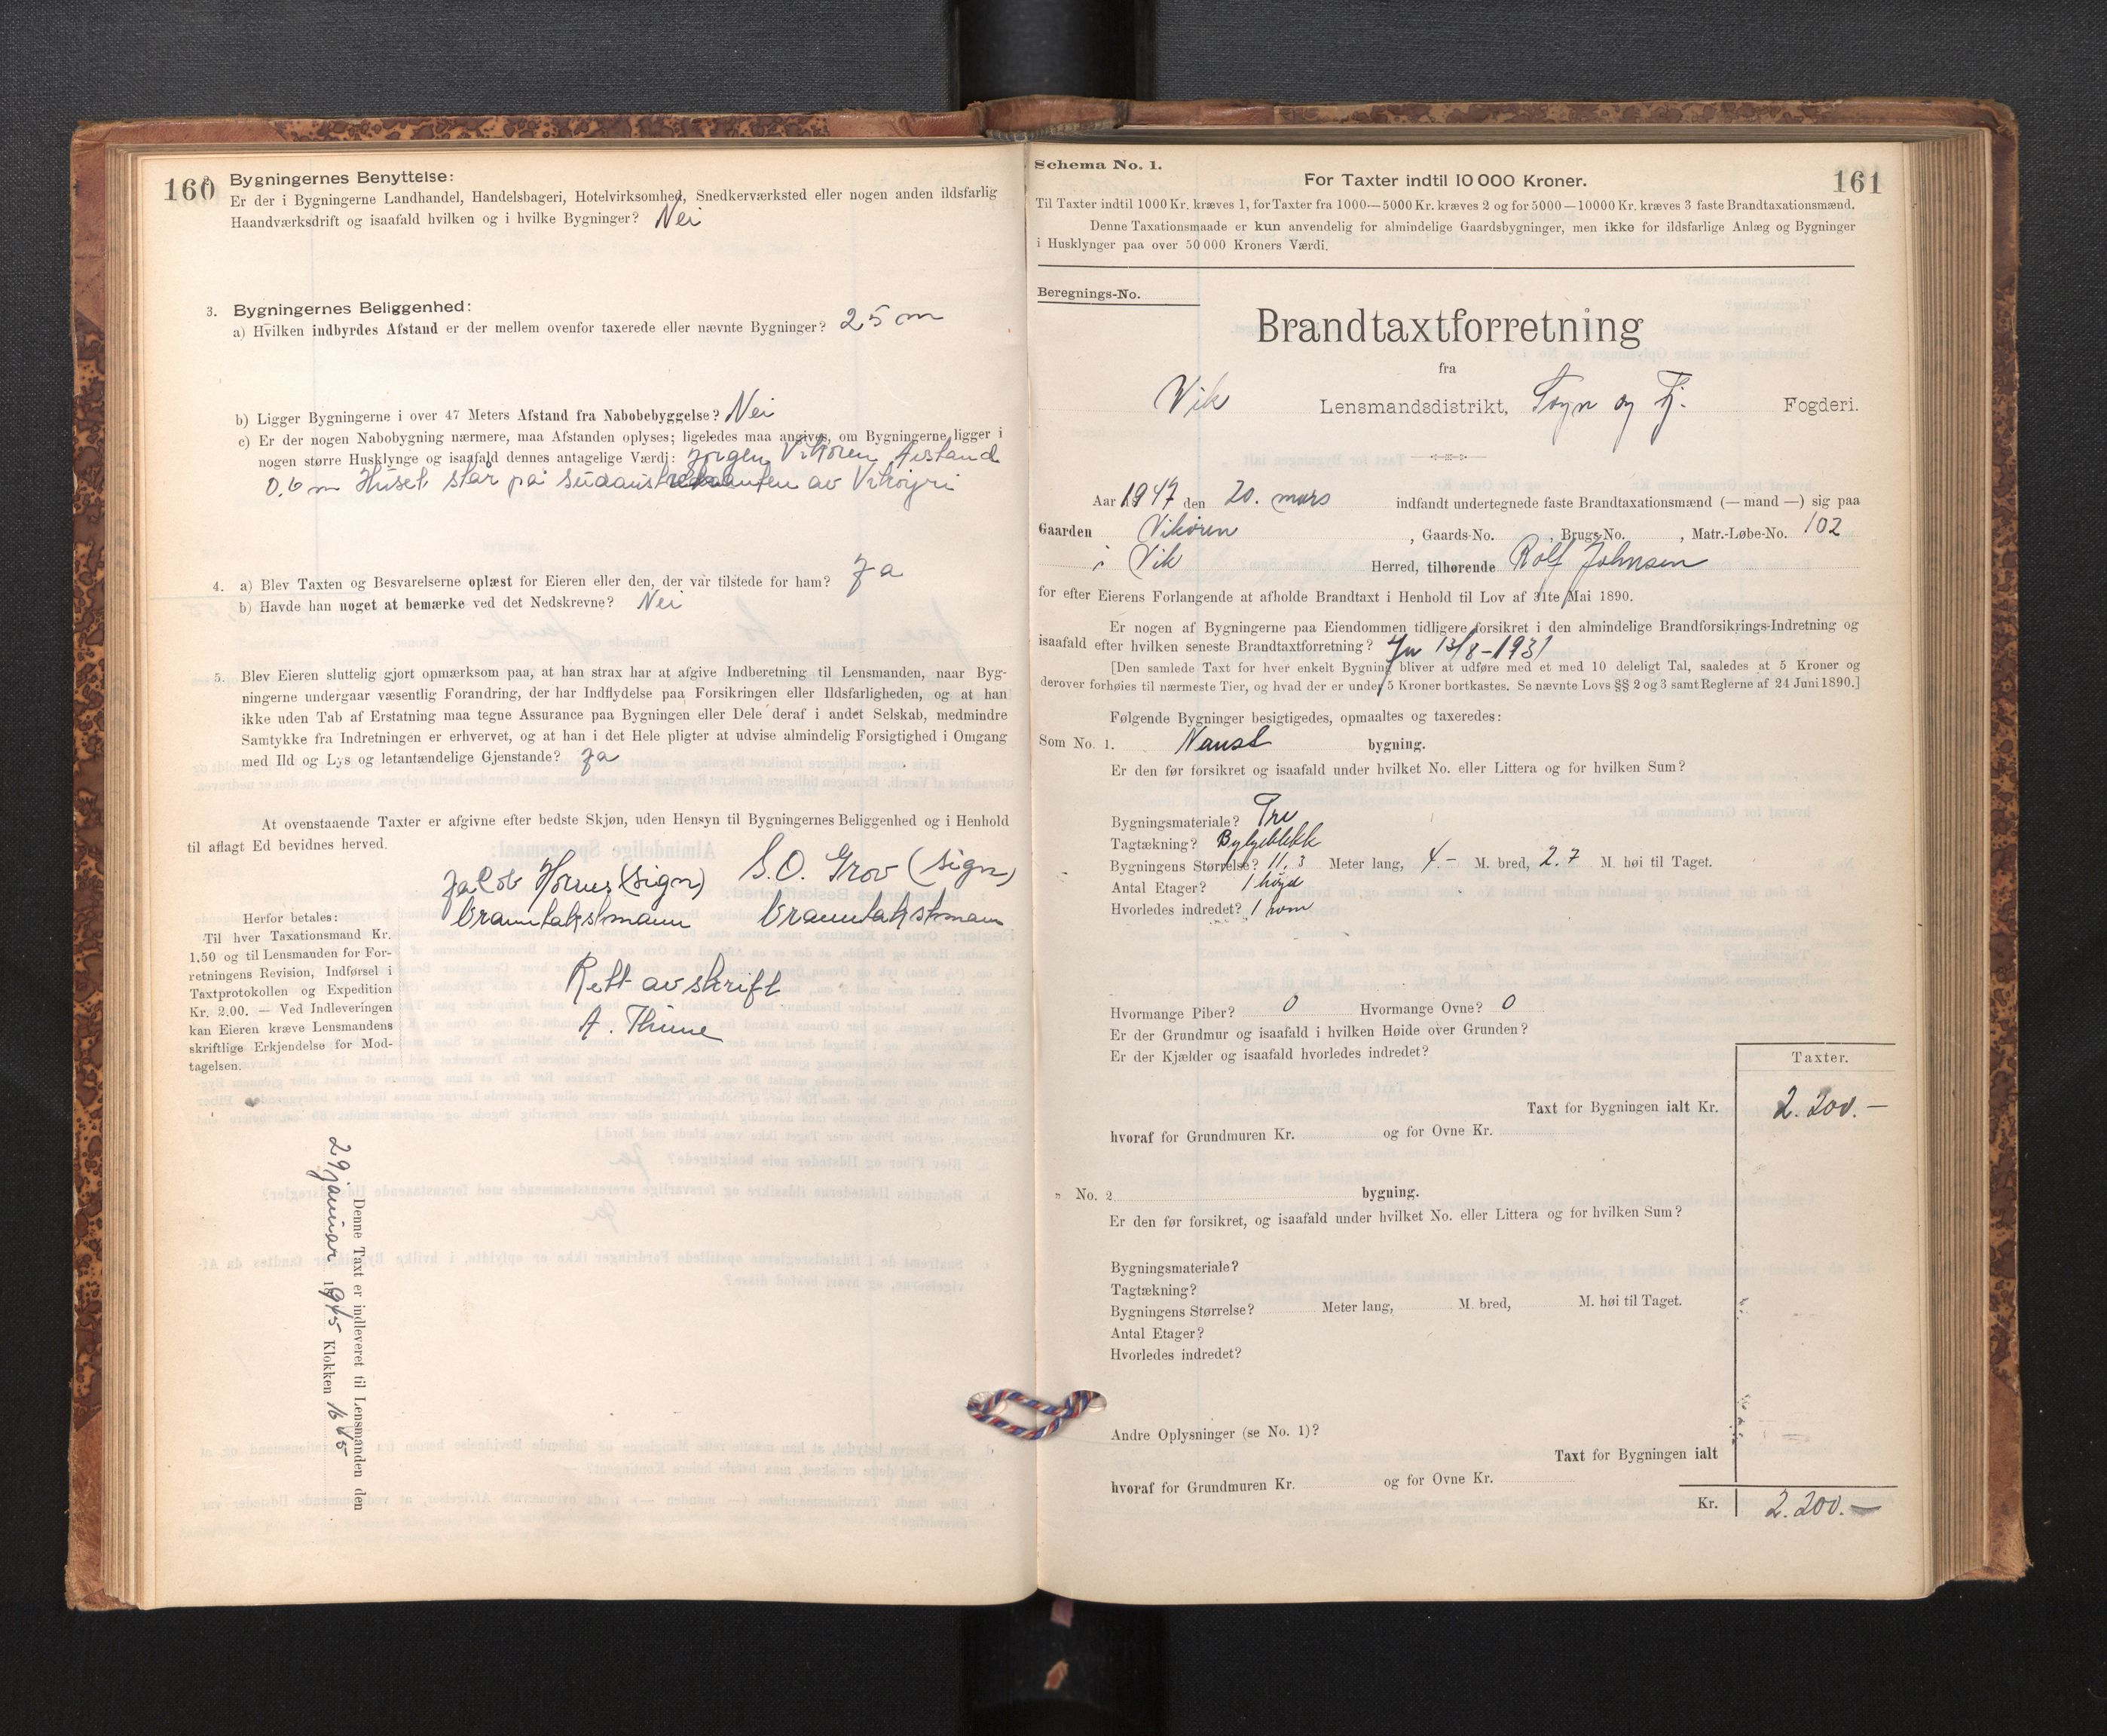 160
Bygningernes Benyttelse:
Er der i Bygningerne Landhandel, Handelsbageri, Hotelvirksomhed, Snedkerværksted eller nogen anden ildsfarlig
Haandværksdrift og isaafald hvilken og i hvilke Bygninger? Nei
3. Bygningernes Beliggenhed:
a) Hvilken indbyrdes Afstand er der mellem ovenfor taxerede eller nævnte Bygninger? 25 m
b) Ligger Bygningerne i over 47 Meters Afstand fra Nabobebyggelse? Nei
c) Er der nogen Nabobygning nærmere, maa Afstanden oplyses; ligeledes maa angives, om Bygningerne ligger i
nogen større Husklynge og isaafald dennes antagelige Værdi: Jørgen Vikøren Avstand
0.6 m Huset står på av Vikøyri
4. a) Blev Taxten og Besvarelserne oplæst for Eieren eller den, der var tilstede for ham? Ja
b) Havde han noget at bemærke ved det Nedskrevne? Nei
5. Blev Eieren sluttelig gjort opmærksom paa, at han strax har at afgive Indberetning til Lensmanden, naar Byg-
ningerne undergaar væsentlig Forandring, der har Indflydelse paa Forsikringen eller Ildsfarligheden, og at han
ikke uden Tab af Erstatning maa tegne Assurance paa Bygningen eller Dele deraf i andet Selskab, medmindre
Samtykke fra Indretningen er erhvervet, og at han i det Hele pligter at udvise almindelig Forsigtighed i Omgang
med Ild og Lys og letantændelige Gjenstande? Ja
At ovenstaaende Taxter er afgivne efter bedste Skjøn, uden Hensyn til Bygningernes Beliggenhed og i Henhold
til aflagt Ed bevidnes herved.
Jacob (sign) S.O. Grov (sign)
branntakstmann branntakstmann
Herfor betales:
Til hver Taxationsmand Kr.
1.50 og til Lensmanden for For-
retningens Revision, Indførsel i
Taxtprotokollen og Expedition
Kr. 2.00. — Ved Indleveringen
kan Eieren kræve Lensmandens
skriftlige Erkjendelse for Mod-
tagelsen.
Rett avskrift
A. Thune
Denne Taxt er indleveret til Lensmanden den
29 januar 1945 Klokken 1645
Schema No. 1.
For Taxter indtil 10 000 Kroner.
161
Til Taxter indtil 1000 Kr. kræves 1, for Taxter fra 1000—5000 Kr. kræves 2 og for 5000—10000 Kr. kræves 3 faste Brandtaxationsmænd.
Denne Taxationsmaade er kun anvendelig for almindelige Gaardsbygninger, men ikke for ildsfarlige Anlæg og Bygninger
i Husklynger paa over 50 000 Kroners Værdi.
Beregnings-No.
Brandtaxtforretning
fra
Vik Lensmandsdistrikt, Sogn og Fj. Fogderi.
Aar 1947 den 20. mars indfandt undertegnede faste Brandtaxationsmænd (— mand —) sig paa
Gaarden Vikøren , Gaards-No. , Brugs-No. , Matr.-Løbe-No. 102
i Vik Herred, tilhørende Rolf Johnsen
for efter Eierens Forlangende at afholde Brandtaxt i Henhold til Lov af 31te Mai 1890.
Er nogen af Bygningerne paa Eiendommen tidligere forsikret i den almindelige Brandforsikrings-Indretning og
isaafald efter hvilken seneste Brandtaxtforretning? 13/8-1931
[Den samlede Taxt for hver enkelt Bygning bliver at udføre med et med 10 deleligt Tal, saaledes at 5 Kroner og
derover forhøies til nærmeste Tier, og hvad der er under 5 Kroner bortkastes. Se nævnte Lovs §§ 2 og 3 samt Reglerne af 24 Juni 1890.]
Følgende Bygninger besigtigedes, opmaaltes og taxeredes:
Som No. 1. Naust bygning.
Er den før forsikret og isaafald under hvilket No. eller Littera og for hvilken Sum?
Bygningsmateriale? Tre
Tagtækning? Bylgjeblekk
Bygningens Størrelse? 11.3 Meter lang, 4.- M. bred, 2.7 M. høi til Taget.
Antal Etager? 1 høgd
Hvorledes indredet? 1 rom
Hvormange Piber? 0 Hvormange Ovne? 0
Er der Grundmur og isaafald i hvilken Høide over Grunden?
Er der Kjælder og isaafald hvorledes indredet?
Taxter.
Taxt for Bygningen ialt Kr. 2.200.—
hvoraf for Grundmuren Kr. og for Ovne Kr.
" No. 2 bygning.
Er den før forsikret, og isaafald under hvilket No. eller Littera og for hvilken Sum?
Bygningsmateriale?
Tagtækning?
Bygningens Størrelse? Meter lang, M. bred, M. høi til Taget.
Antal Etager?
Hvorledes indredet?
Andre Oplysninger (se No. 1)?
Taxt for Bygningen ialt
hvoraf for Grundmuren Kr. og for Ovne Kr.
Kr. 2.200.—